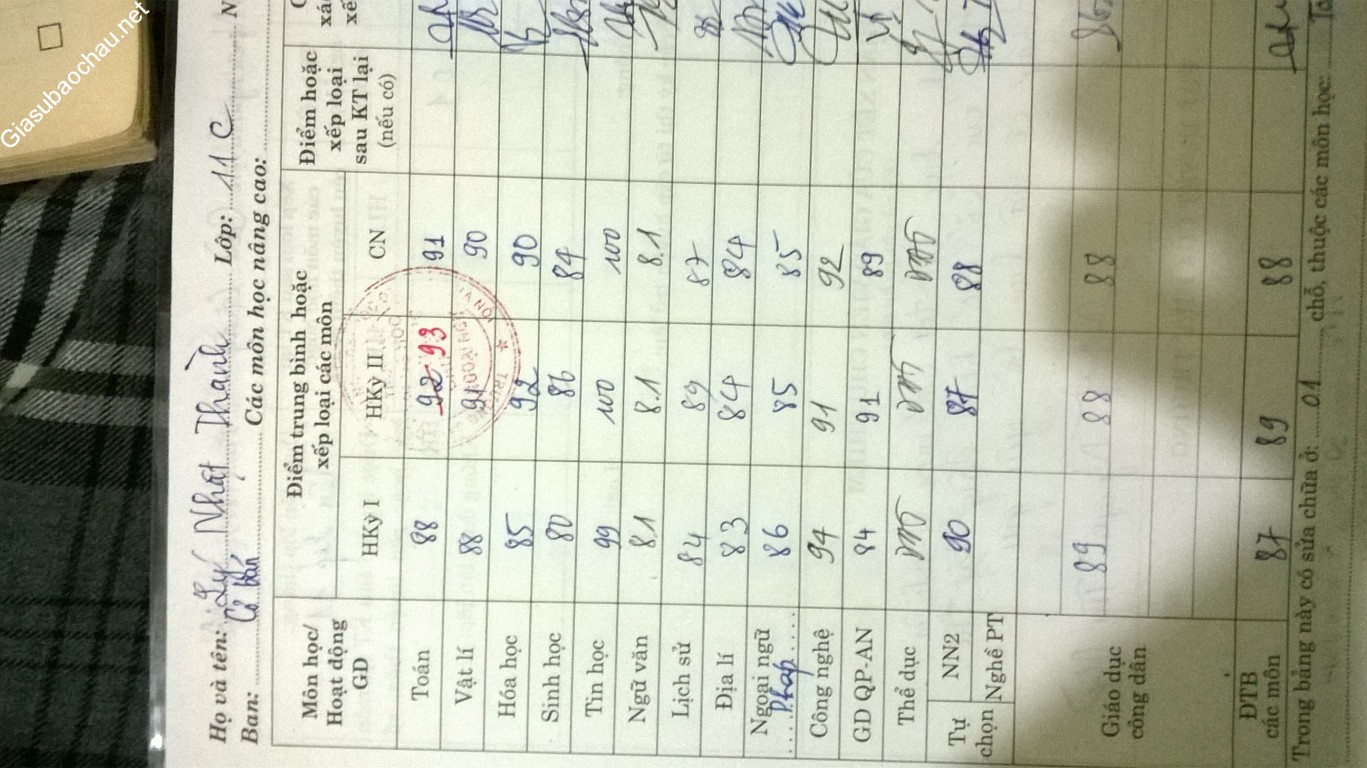 Giasubaochau.net
Họ và tên: Lý Nhật Thành Lớp: 11 C
Ban: Cơ bản Các môn học nâng cao:
Môn học/ Hoạt động GD
Điểm trung bình hoặc xếp loại các môn
Điểm hoặc xếp loại sau KT lại (nếu có)
HKỳ I HKỳ II CN
Toán 88 92 93 91
Vật lí 88 91 90
Hóa học 85 92 90
Sinh học 80 86 84
Tin học 99 100 100
Ngữ văn 8.1 8.1 8.1
Lịch sử 84 89 87
Địa lí 83 84 84
Ngoại ngữ Pháp 86 85 85
Công nghệ 94 91 92
GD QP-AN 84 91 89
Thể dục
Tự chọn NN2 90 87 88
Nghề PT
Giáo dục công dân 89 88 88
ĐTB các môn 87 89 88
Trong bảng này có sửa chữa ở: 01 chỗ, thuộc các môn học: